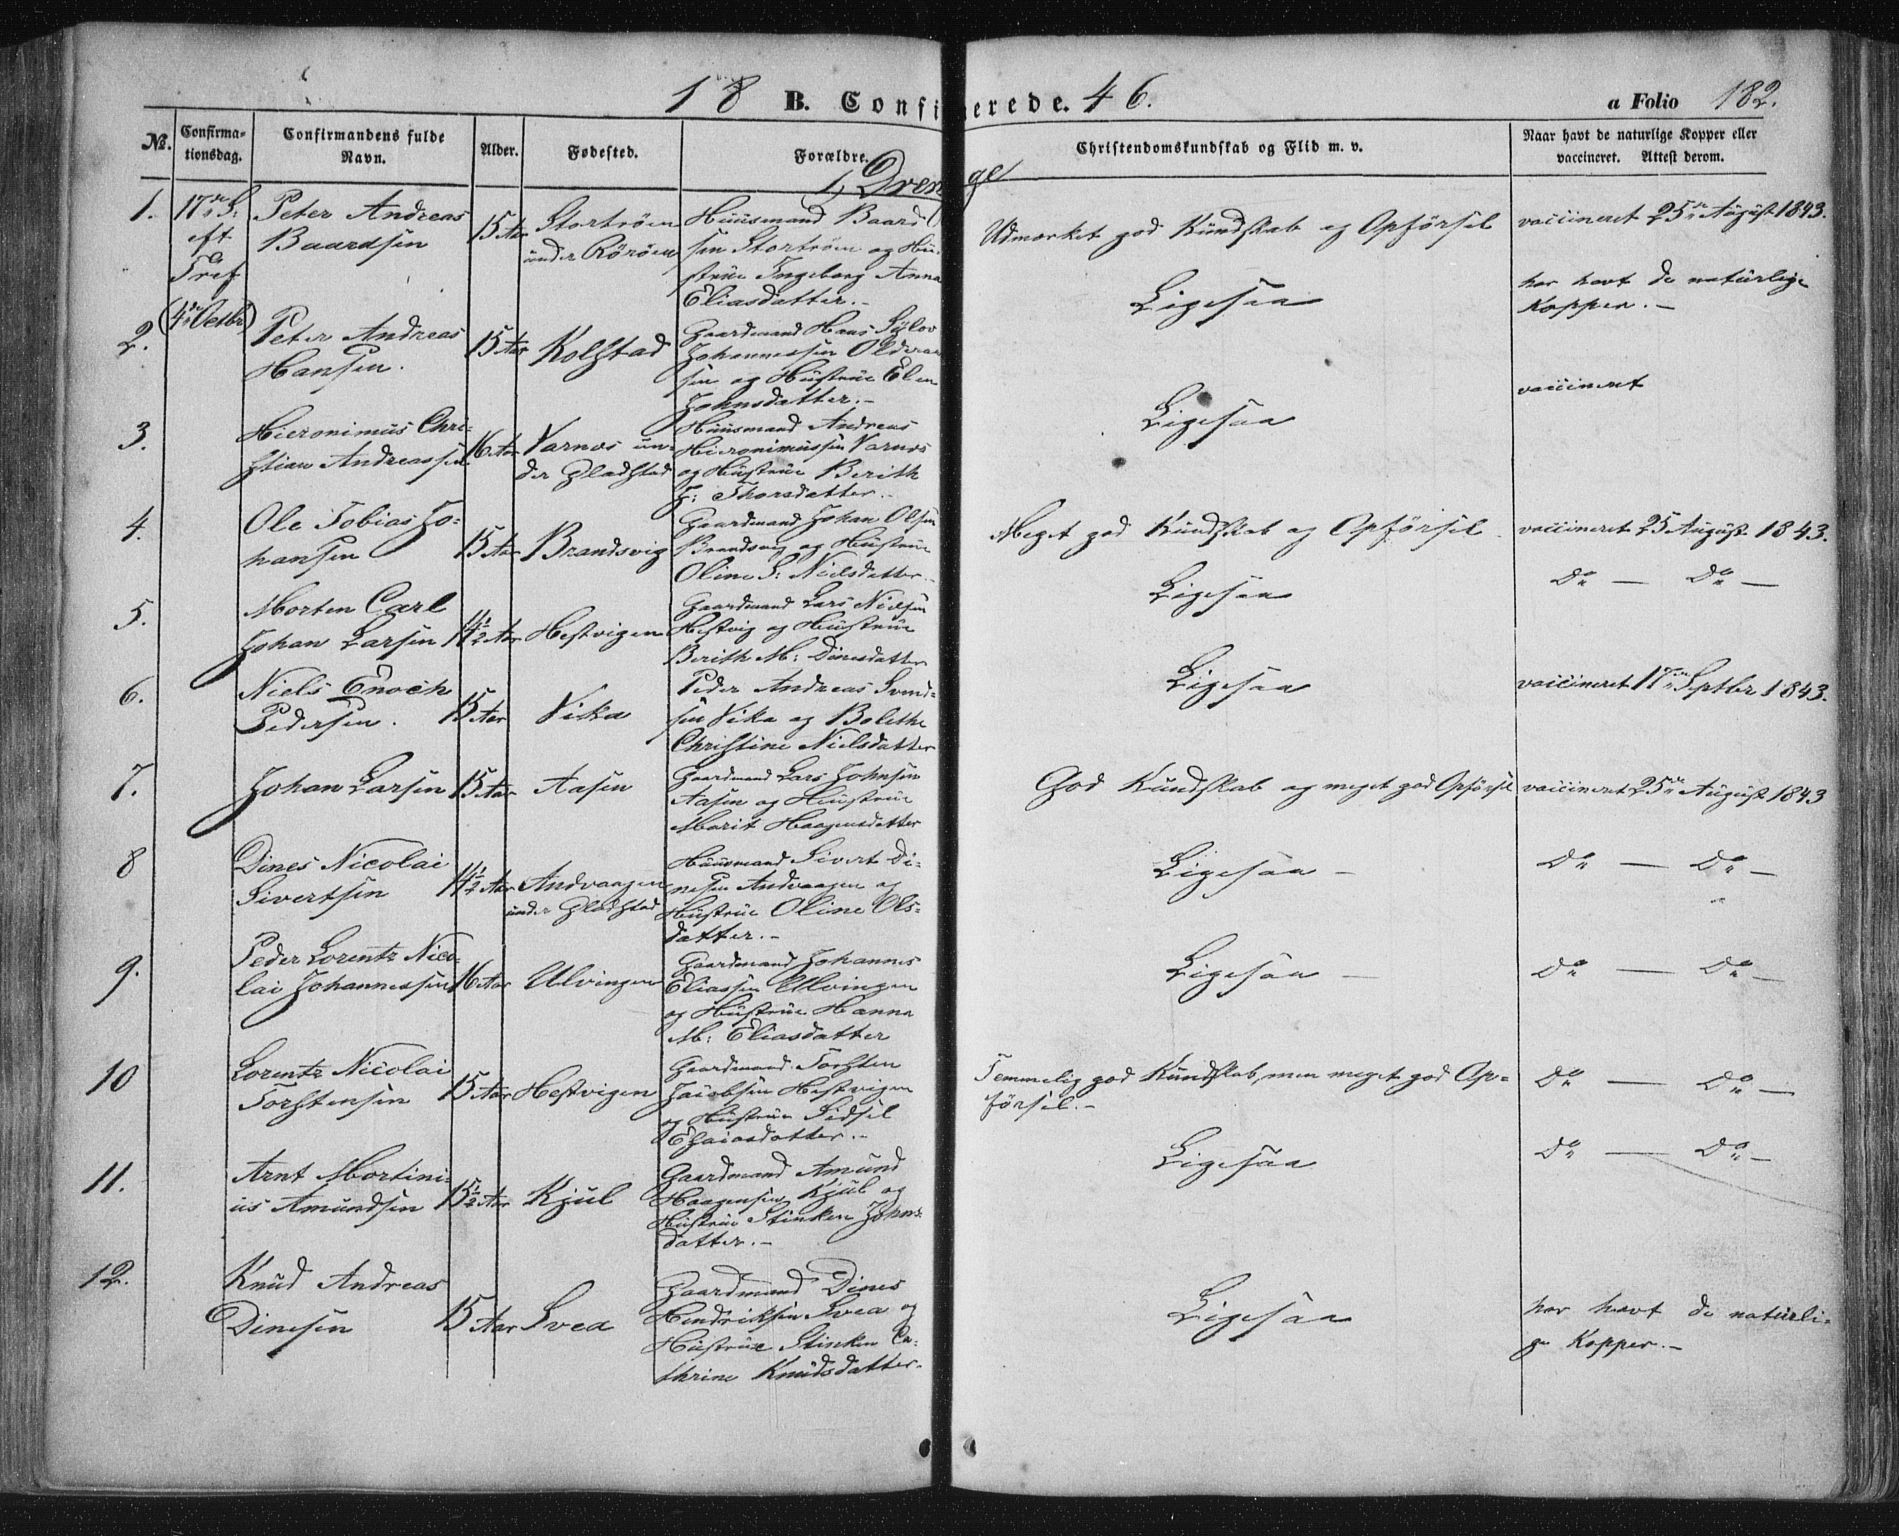 18 B. Confirmerede. 46. a Folio 182.
№. Confirma-tionsdag. Confirmandens fulde Navn. Alder. Fødested. Forældre. Christendomskundskab og Flid m. v. Naar havt de naturlige Kopper eller vaccineret. Attest derom.
1, Drenge
1. 17de S: eft Tref (4de Octbr)
Peter Andreas
Baardsen
15 Aar
Stortrøen
under Röröen
Huusmand Baard
sen Stortrøen og Hu-
strue Ingeborg Anna
Eliasdatter.-
Udmærket god Kundskab og Opförsel
vaccineret 25de August 1843.
2.
Peter Andreas
Hansen.
15 Aar
Kolstad
Gaardmand Hans Sylov
Johannessen
sen og Hustrue Elen
Johnsdatter.-
Ligesaa
har havt de naturlige
Kopper.-
3.
Hieronimus Chri-
stian Andreassen
16 Aar
Varnæs un-
der Pladstad
Huusmand Andreas
Hieronimussen Varnæs
og Hustrue Berith
F: Thorsdatter.-
Ligesaa
vaccineret
4.
Ole Tobias Jo-
hansen
15 Aar
Brandsvig
Gaardmand Johan Olsen
Brandsvig og Hustrue
Oline S: Nielsdatter.-
Meget god Kundskab og Opförsel
vaccineret 25 August 1843.
5.
Morten Carl
Johan Larsen
14½ Aar
Hestvigen
Gaardmand Lars Nielsen
Hestvig og Hustrue
Berith M: Dinesdatter
Ligesaa
Do — Do —
6.
Niels Enoch
Pedersen.
15 Aar
Vika
Peder Andreas Svend-
sen Vika og Bolethe
Christine Nielsdatter
Ligesaa
vaccineret 17de Septbr 1843.
7.
Johan Larsen
15 Aar
Aasen
Gaardmand Lars Johnsen
Aasen og Hustrue
Marit Haagensdatter
God Kundskab og meget god Opförsel
vaccineret 25de August 1843
8
Dines Nicolai
Sivertsen
14½ Aar
Andvaagen
under Pladstad
Huusmand Sivert Di-
nesen Andvaagen og
Hustrue Oline Ols-
datter.-
Ligesaa -
Do — Do -
9.
Peder Lorentz Nico-
lai Johannessen
16 Aar
Ulvingen
Gaardmand Johannes
Eliassen Ulvingen
og Hustrue Hanna
M: Eliasdatter
Ligesaa —
Do — Do —
10
Lorentz Nicolai
Torstensen
15 Aar
Hestvigen
Gaardmand Torsten
Jacobsen Hestvigen
og Hustrue Sidsel
Esaiasdatter.-
Temmelig god Kundskab, men meget god Op-
försel.-
Do — Do —
11.
Arnt Mortini-
us Amundsen
15½ Aar
Kjul
Gaardmand Amund
Haagensen Kjul og
Hustrue Stinken Johns-
datter.-
Ligesaa
Do — Do -
12.
Knud Andreas
Dinesen
15 Aar
Svea
Gaardmand Dines
Hendriksen Svea og
Hustrue Stinken Ca-
thrine Knudsdatter.
Ligesaa
har havt de naturli-
ge Kopper.-